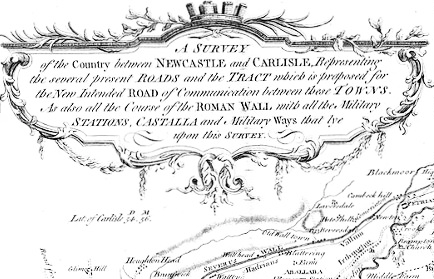 A SURVEY
of the Country between NEWCASTLE and CARLISLE, Representing
the several present ROADS and the TRACT which is proposed for
the New Intended ROAD of Communication between those TOWNS.
As also all the Course of the ROMAN WALL with all the Military
STATIONS, CASTALLA and Military Ways that lye
upon this SURVEY.
Blackmoor
Cambeck hill
Lat. of Carlisle D. M.
Old Wall town
Houghton Head
Wallhead
SEVERUS WALL
Hadrians
Vallum
ABALLABA
Watton
Church